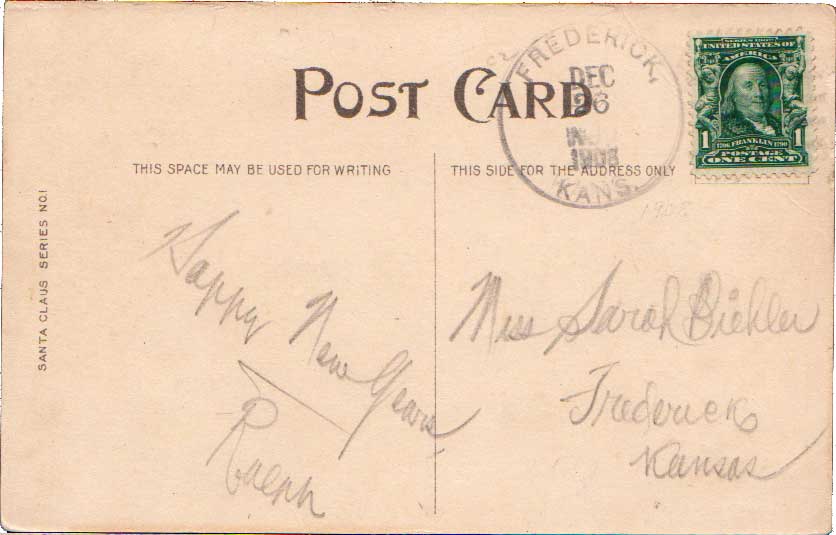 POST CARD
FREDERICK,
DEC
26
1908
KANS.
SERIES 1902
UNITED STATES OF
AMERICA
1 1706 FRANKLIN 1790 1
POSTAGE
ONE CENT
THIS SPACE MAY BE USED FOR WRITING
THIS SIDE FOR THE ADDRESS ONLY
1908
SANTA CLAUS SERIES NO.1
Happy New Years,
Ralph
Miss Sarah Biehler
Frederick
Kansas